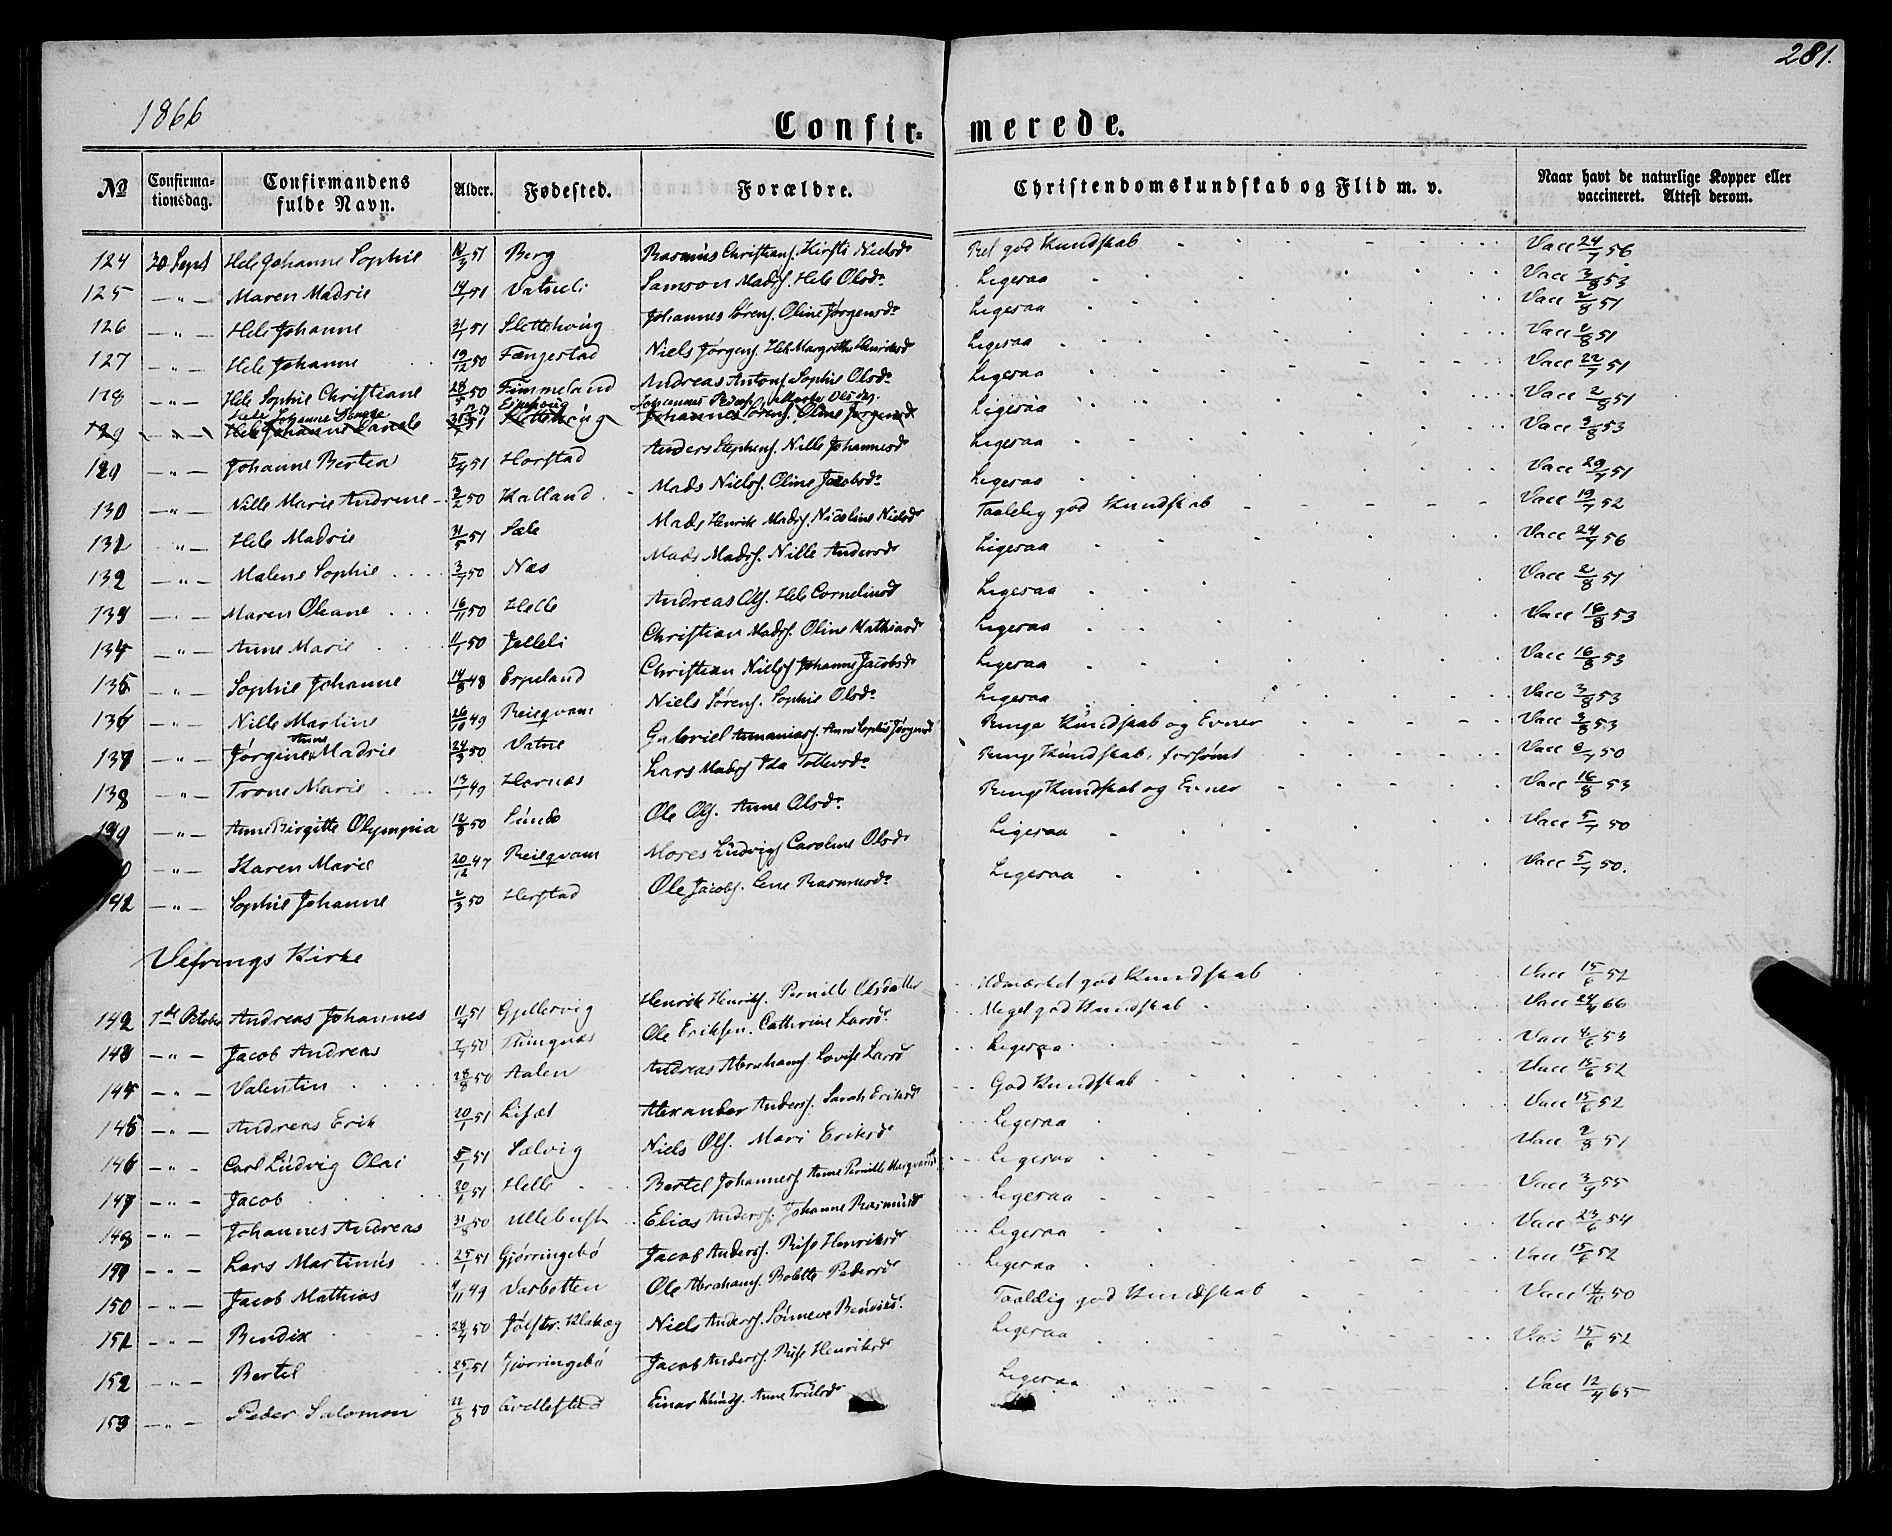 281.
1866
Confir= merede.
No Confirma=tionsdag. Confirmandens fulde Navn. Alder. Fødested. Forældre. Christendomskundskab og Flid m. v. Naar havt de naturlige Kopper eller vaccineret. Attest derom.
124 30 Sept Hele Johanne Sophie 16/3 51 Berg Rasmus Christians. Kirsti Nielsdr Ret god Kundskab Vacc 24/7 56
125 — " — Maren Madrie 14/1 51 Vatneli Samson Mads. Hele Olsdr Ligesaa Vacc 3/8 53
126 — " — Hele Johanne 31/1 51 Slettehoug Johannes Sørens. Oline Jørgensdr Ligesaa Vacc 2/8 51
127 — " — Hele Johanne 19/12 50 Fængestad Niels Jørgens. Hele Margrethe Henriksdr Ligesaa Vacc 2/8 51
128 — " — Hele Sophie Christiane 28/5 50 Fimmeland Andreas Antons. Sophie Olsdr Ligesaa Vacc 22/7 51
129 — " — Hele Johanne Johannes Sørens. Oline Jørgensdr Ligesaa Vacc 2/8 51
— " — Johanne Bertea 5/4 51 Horstad Anders Stephens. Nille Johannesd Ligesaa Vacc 3/8 53
130 — " — Nille Marie Andrine 3/2 50 Kalland Mads Niels. Oline Jacobsdr Ligesaa Vacc 29/7 51
131 " — Hele Madrie 31/5 51 Sæle Mads Henrik Mads. Nicoline Nielsdr Taalelig god Kundskab Vacc 19/7 52
132 — " — Malene Sophie 3/7 50 Næs Mads Mads. Nille Andersdr Ligesaa Vacc 24/7 56
133 — " — Maren Oleane 16/11 50 Helle Andreas Ols. Hele Corneliusd Ligesaa Vacc 2/8 51
134 — " — Anne Marie 11/1 50 Jelleli Christian Mads. Oline Mathiasd Ligesaa Vacc 16/8 53
135 — " — Sophie Johanne 14/8 48 Espeland Christian Niels. Johanne Jacobsdr Ligesaa Vacc 16/8 53
136 — " — Nille Martine 26/10 49 Reiseqvam Niels Sørens. Sophie Olsdr Ligesaa Vacc 3/8 53
137 — " — Jørgine Anne Madrie 24/3 50 Vatne Gabriel Annanias. Anne Sophie Jørgensd Ringe Kundskab og Evner Vacc 3/8 53
138 — " — Trone Marie 13/1 49 Hornæs Lars Mads. Ida Tollevsdr Ringe Kundskab, forsømt Vacc 50
139 — " — Anne Birgitte Olympia 12/8 50 Sunde Ole Ols. Anne Olsdr Ringe Kundskab og Evner Vacc 16/8 53
— " — Karen Marie 20/12 47 Reiseqvam Mores Ludvigs. Caroline Olsdr Ligesaa Vacc 5/7 50
141 — " — Sophie Johanne 2/3 50 Herstad Ole Jacobs. Lene Rasmusdr Ligesaa Vacc 5/7 50.
Vefrings Kirke
142 7de October Andreas Johannes 11/4 51 Gjellervig Henrik Henriks. Pernille Olsdatter Udmærket god Kundskab Vacc 15/6 52
143 — " — Jacob Andreas 7/7 50 Thingnæs Ole Eriksen. Cathrine Larsdr Meget god Kundskab Vacc 24/4 66
144 — " — Valentin 28/8 50 Aalen Andreas Abrahams. Lovise Larsd Ligesaa Vacc 4/6 53
145 — " — Andreas Erik 20/1 51 Liset Alexander Anders. Sarah Eriksd God Kundskab Vacc 15/6 52
146 — " — Carl Ludvig Olai 5/1 51 Solvig Niels Ols. Mari Eriksd Ligesaa Vacc 15/6 52
147 — " — Jacob 20/1 51 Helle Bertel Johanness. Anne Pernille Ligesaa Vacc 2/8 51
148 — " — Johannes Andreas 31/8 50 Ullebust Elias Anders. Johanne Rasmusd Ligesaa Vacc 3/9 55
149 — " — Lars Martinus 25/1 51 Gjørringebø Jacob Anders. Rise Henriksdr Ligesaa Vacc 23/6 54
150 — " — Jacob Mathias 4/11 49 Varbotten Ole Abrahams. Bolette Pedersd Ligesaa Vacc 15/6 52
151 — " — Bendix 28/4 50 Jølster. Klakæg Niels Anders. Sønneve Bendiksd. Taalelig god Kundskab Vacc 14/10 50
152 — " — Bertel 25/1 51 Gjørringebø Jacob Anders. Rise Henriksdr Ligesaa Vacc 15/6 52
153 — " — Peder Salomon 22/8 50 Gredlestad Einar Knuds. Anne Trulsdr Ligesaa Vacc 12/4 65